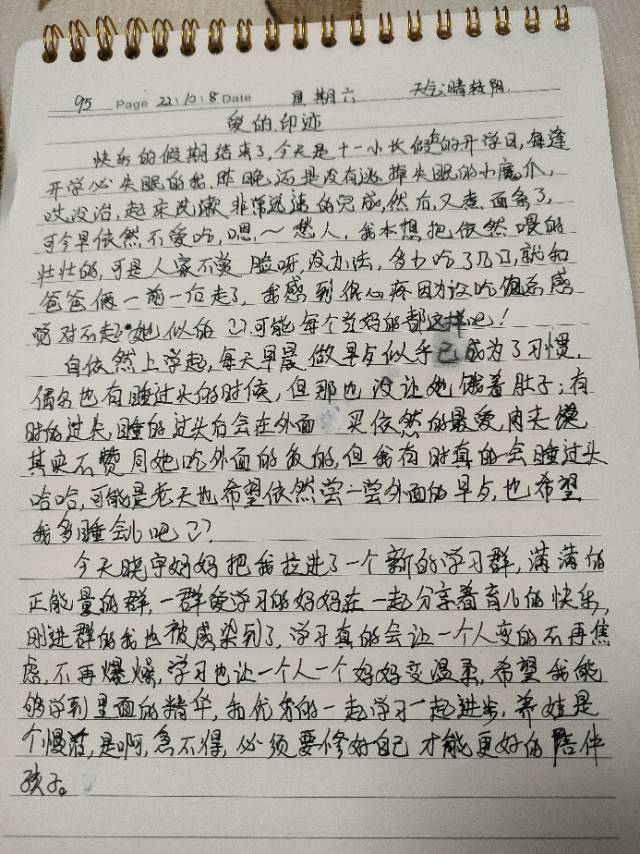 95 Page 22.10.8 Date 星期六 天气:晴转阴.
爱的印迹
快乐的假期结束了,今天是十一小长假后的开学日,每逢
开学必失眠的我,昨晚还是没有逃掉失眠的小魔爪,
哎没治,起床洗漱非常迅速的完成,然后,又煮面条了,
可今早依然不爱吃,嗯,~愁人,我本想把依然喂的
壮壮的,可是人家不赏脸呀没办法,多少吃了几口,就和
爸爸俩一前一后走了,我感到很心疼因为没吃饱总感
觉对不起她似的 可能每个当妈的都这样吧!
自依然上学起,每天早晨做早点似乎已成为了习惯,
偶尔也有睡过头的时候,但那也没让她饿着肚子;有
时的过头,睡的过头后会在外面买依然的最爱,肉夹馍
其实不赞同她吃外面的饭的,但我有时真的会睡过头
哈哈,可能是老天也希望依然尝一尝外面的早点,也希望
我多睡会儿吧
今天晓宇妈妈把我拉进了一个新的学习群,满满的
正能量的群,一群爱学习的妈妈在一起分享着育儿的快乐,
刚进群的我也被感染到了,学习真的会让一个人变的不再焦
虑,不再爆燥,学习也让一个人一个妈妈变温柔,希望我能
够学到里面的精华,和优秀的一起学习一起进步,养娃是
个慢活,是啊,急不得,必须要修好自己才能更好的陪伴
孩子。